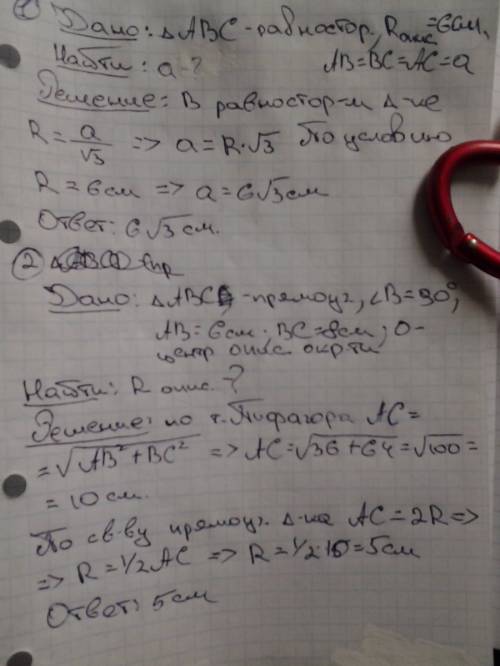 ① Дано: △ABC - равностор, Rопис = 6см,
AB=BC=AC=a
Найти: a-?
Решение: В равностор-м △-ке
R = a/√3 => a = R·√3 По условию
R = 6см => a = 6√3 см
Ответ: 6√3 см.
②
Дано: △ABC - прямоуг, ∠B=90°,
AB=6см. BC=8см; O-
центр опис. окр-ти
Найти: R опис. ?
Решение: по т. Пифагора AC=
= √AB²+BC² => AC=√36+64=√100=
= 10 см.
По св-ву прямоуг. △-ка AC=2R =>
=> R=1/2AC => R=1/2·10=5см
Ответ: 5 см